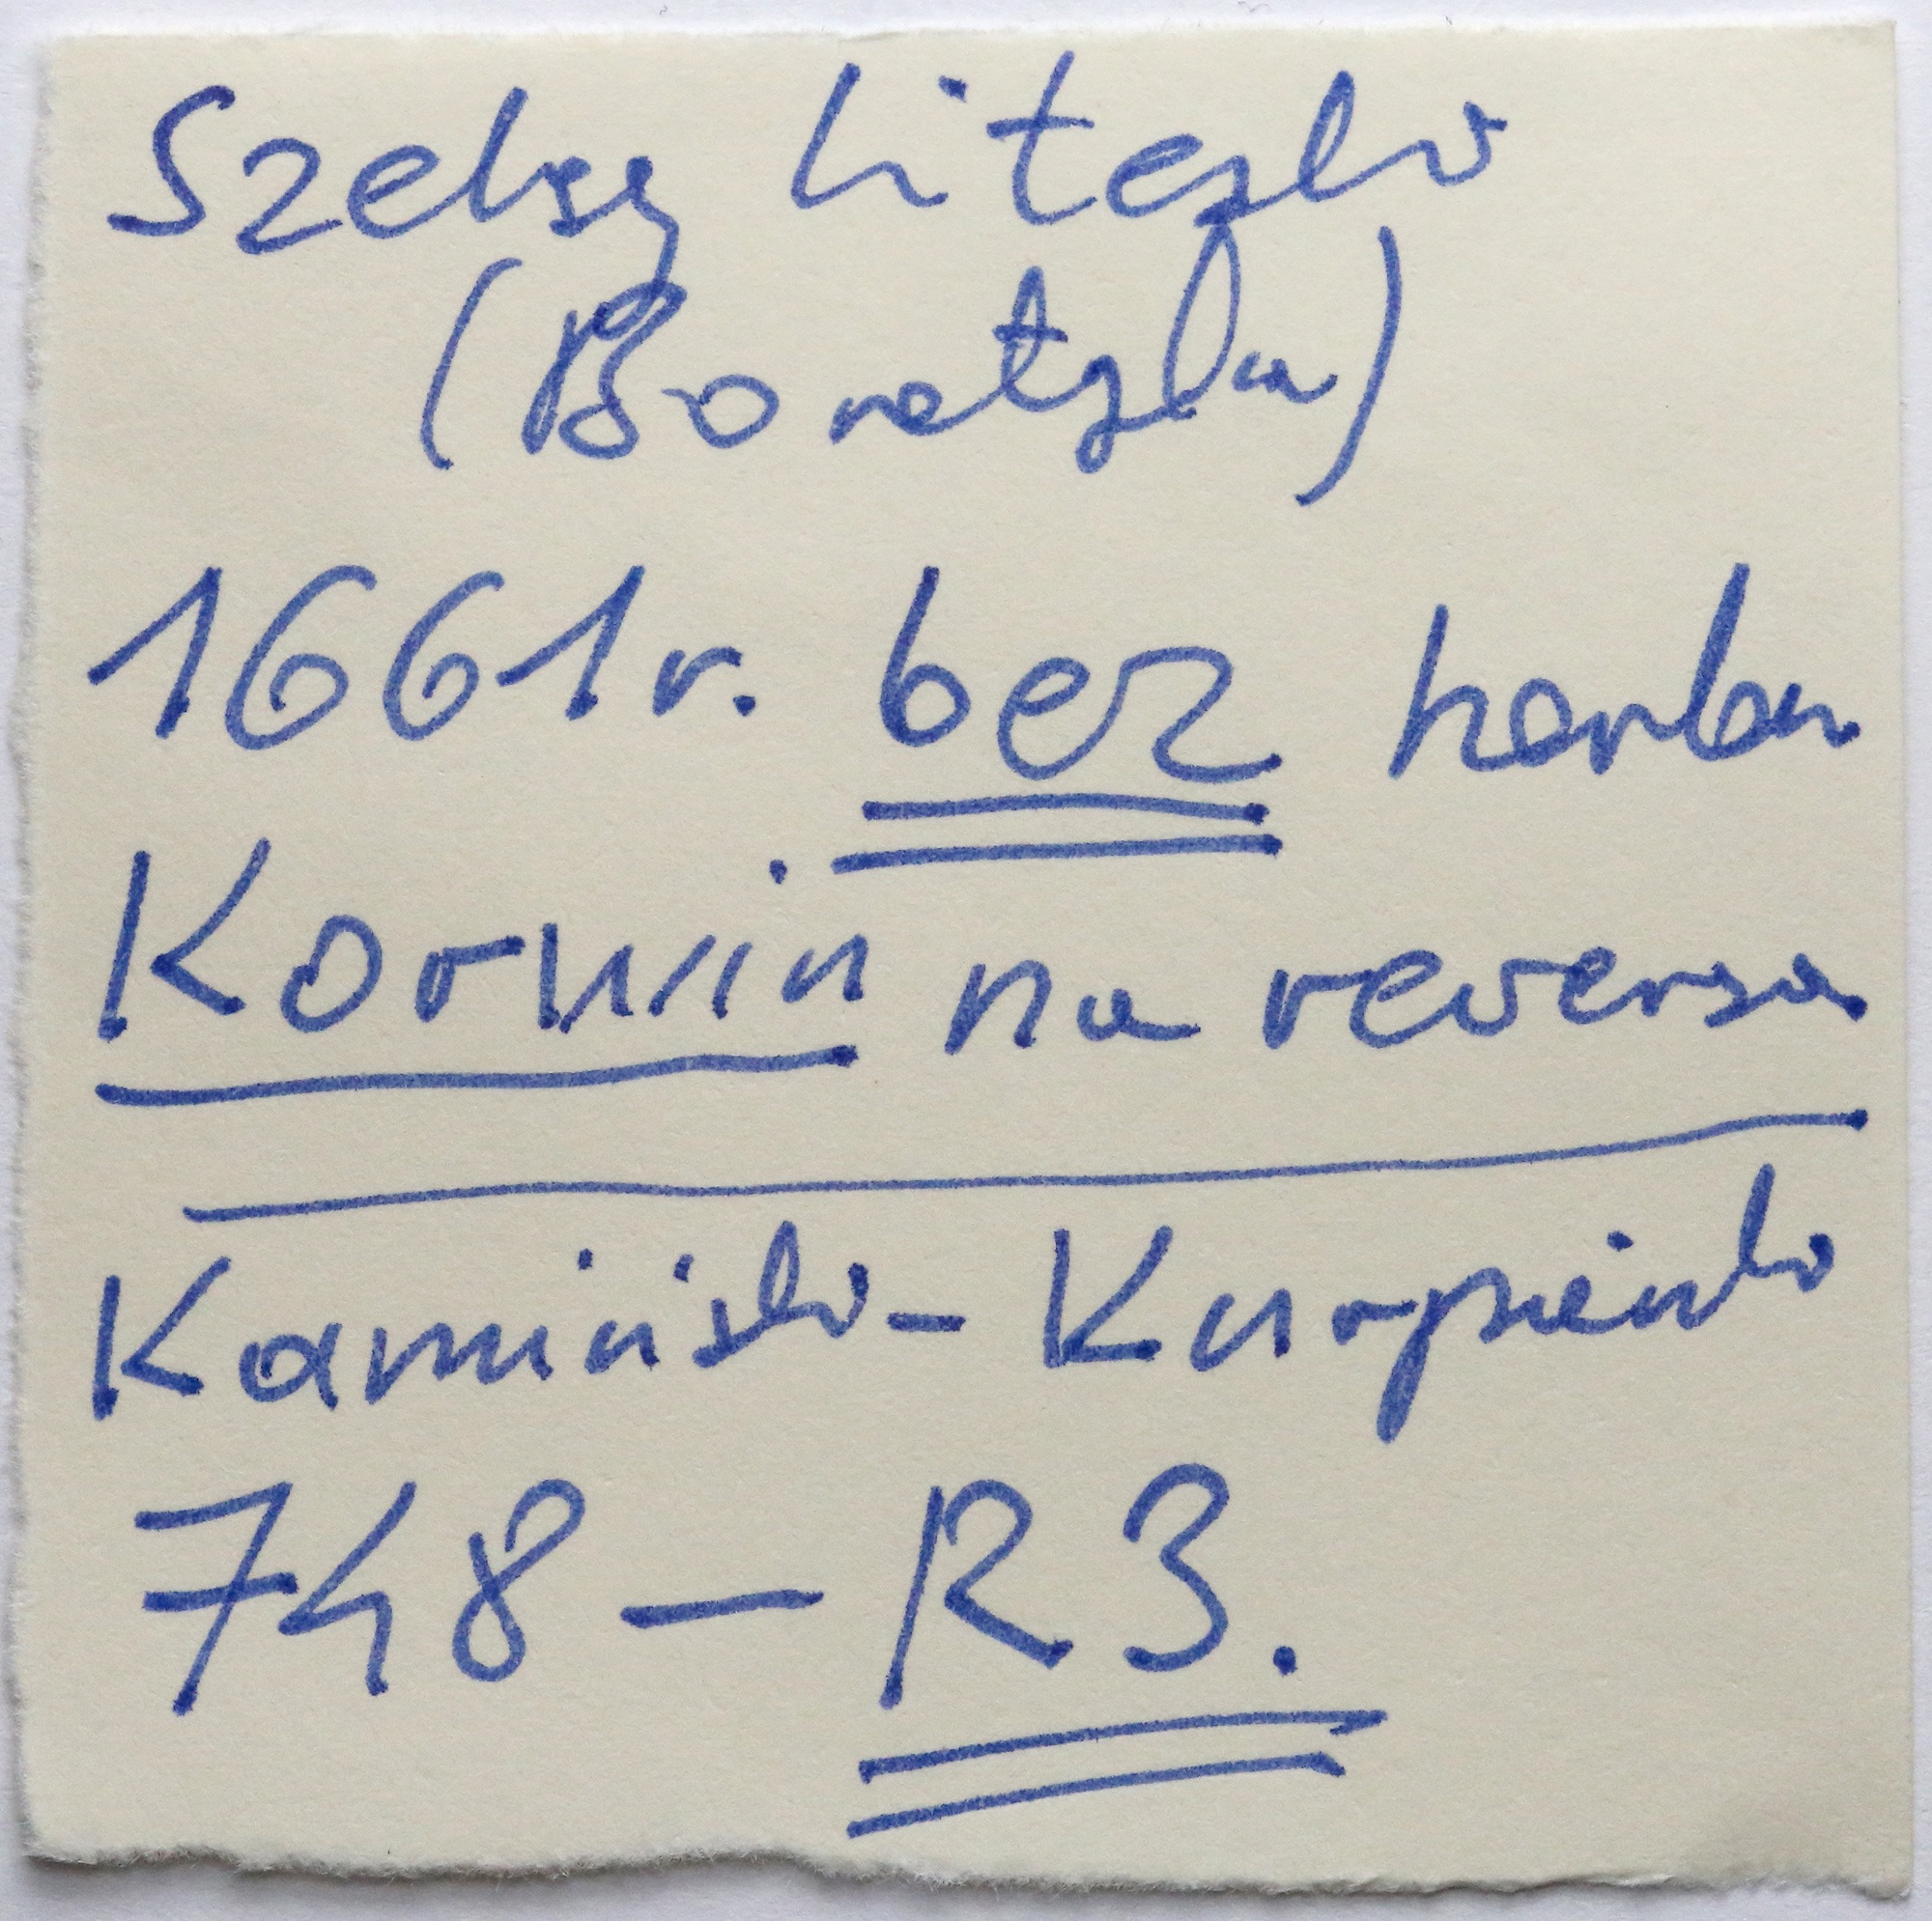 Szeląg litewski
(Boratynka)
1661 r. bez herbu
Korwin na rewersie
Kamiński - Kurpiewski
748 - R3.